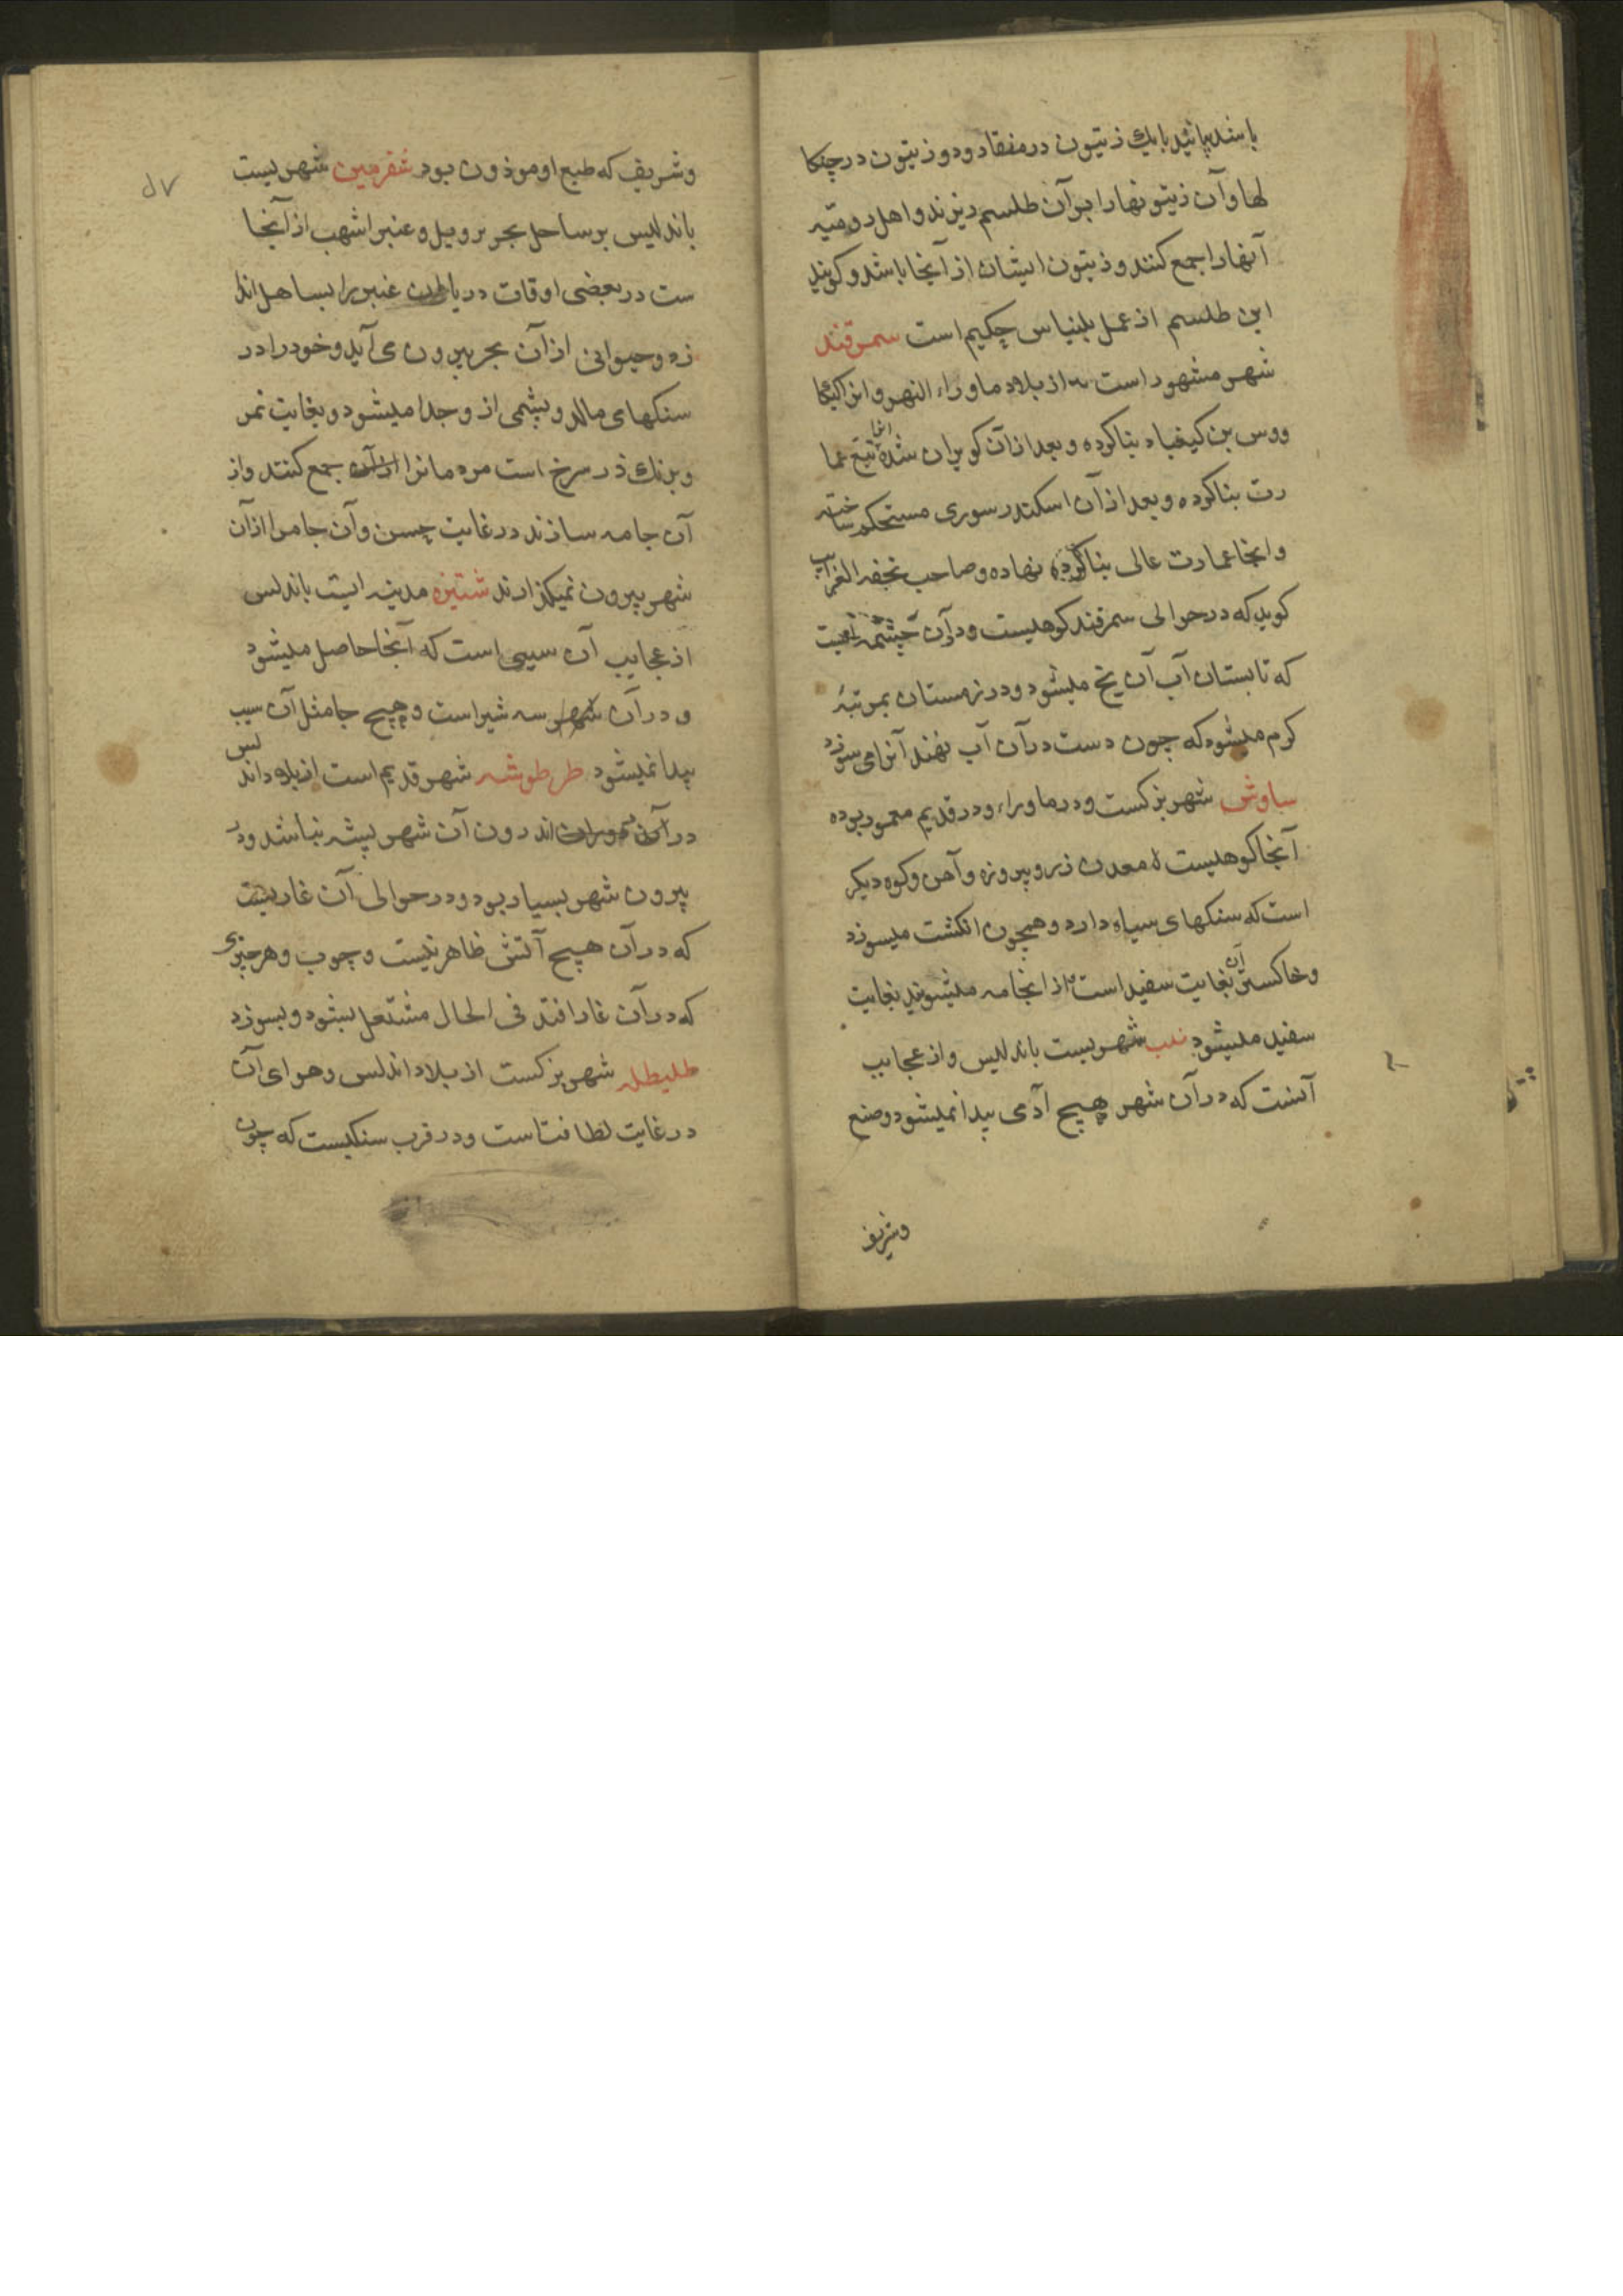 باشد بیانید با یک زیتون در منقار و دو زیتون در چنکا
لها و آن زیتونها را بر آن طلسم ریزند و اهل رومیه
آنها را جمع کنند و زیتون ایشان از آنجا باشد و کویند
این طلسم از عمل بلنیاس حکیم است سمرقند
شهر مشهور است از بلاد ماوراء النهر و انرا کیکا
ووس بن کیقباد بنا کرده و بعد از آن کویران شده تبع عما
رت بنا کرده و بعد از آن اسکندر سوری مستحکم ساخته
و انجا عمارت عالی بنا کرده نهاده و صاحب تحفه الغرایب
کوید که در حوالی سمرقند کوهیست و در آن چشمه ایست
که تابستان آب آن یخ میشود و در زمستان بمرتبهٔ
کرم میشود که چون دست در آن آب نهند آنرا می سوزد
ساوش شهر بزکست و در ماوراء و در قدیم معمور بوده
آنجا کوهیست که معدن زر و پیروزه و آهن و کوه دیکر
است که سنکهای سیاه دارد و همچون انکشت میسوزد
و خاکستر آن بغایت سفید است از انجامه میشویند بغایت
سفید میشود شهریست باندلیس و از عجایب
آنست که در آن شهر هیچ آدمی پیدا نمیشود وضع
وشریف
۵۷
وشریف که طبع او موزون بود شقرمین شهریست
باندلیس بر ساحل بحر بروبیل و عنبر اشهب از آنجا
ست در بعضی اوقات دریا عنبر را بساحل اندا
زد و حیوانی از آن بحر بیرون می آید و خود را در
سنکهای مالد و پشمی از و جدا میشود و بغایت نمر
و برنک زر سرخ است مردمانرا از آن جمع کنند و از
آن جامه سازند در غایت حسن و آن جامرا از آن
شهر بیرون نمیکذارند شنتیزه مدینه ایست باندلس
از عجایب آن سیبی است که آنجا حاصل میشود
و در آن شهر سه شیر است و هیچ جا مثل آن سیب
پیدا نمیشود طرطوشه شهر قدیم است از بلاد اندلس
در آن اندرون آن شهر پیشه نباشد و در
بیرون شهر بسیار بود و در حوالی آن غاریست
که در آن هیچ آتش ظاهر نیست و چوب و هر چیزی
که در آن غار افتد فی الحال مشتعل بشود و بسوزد
طلیطله شهر بزکست از بلاد اندلس و هوای آن
در غایت لطافتاست و در قرب سنکیست که چون